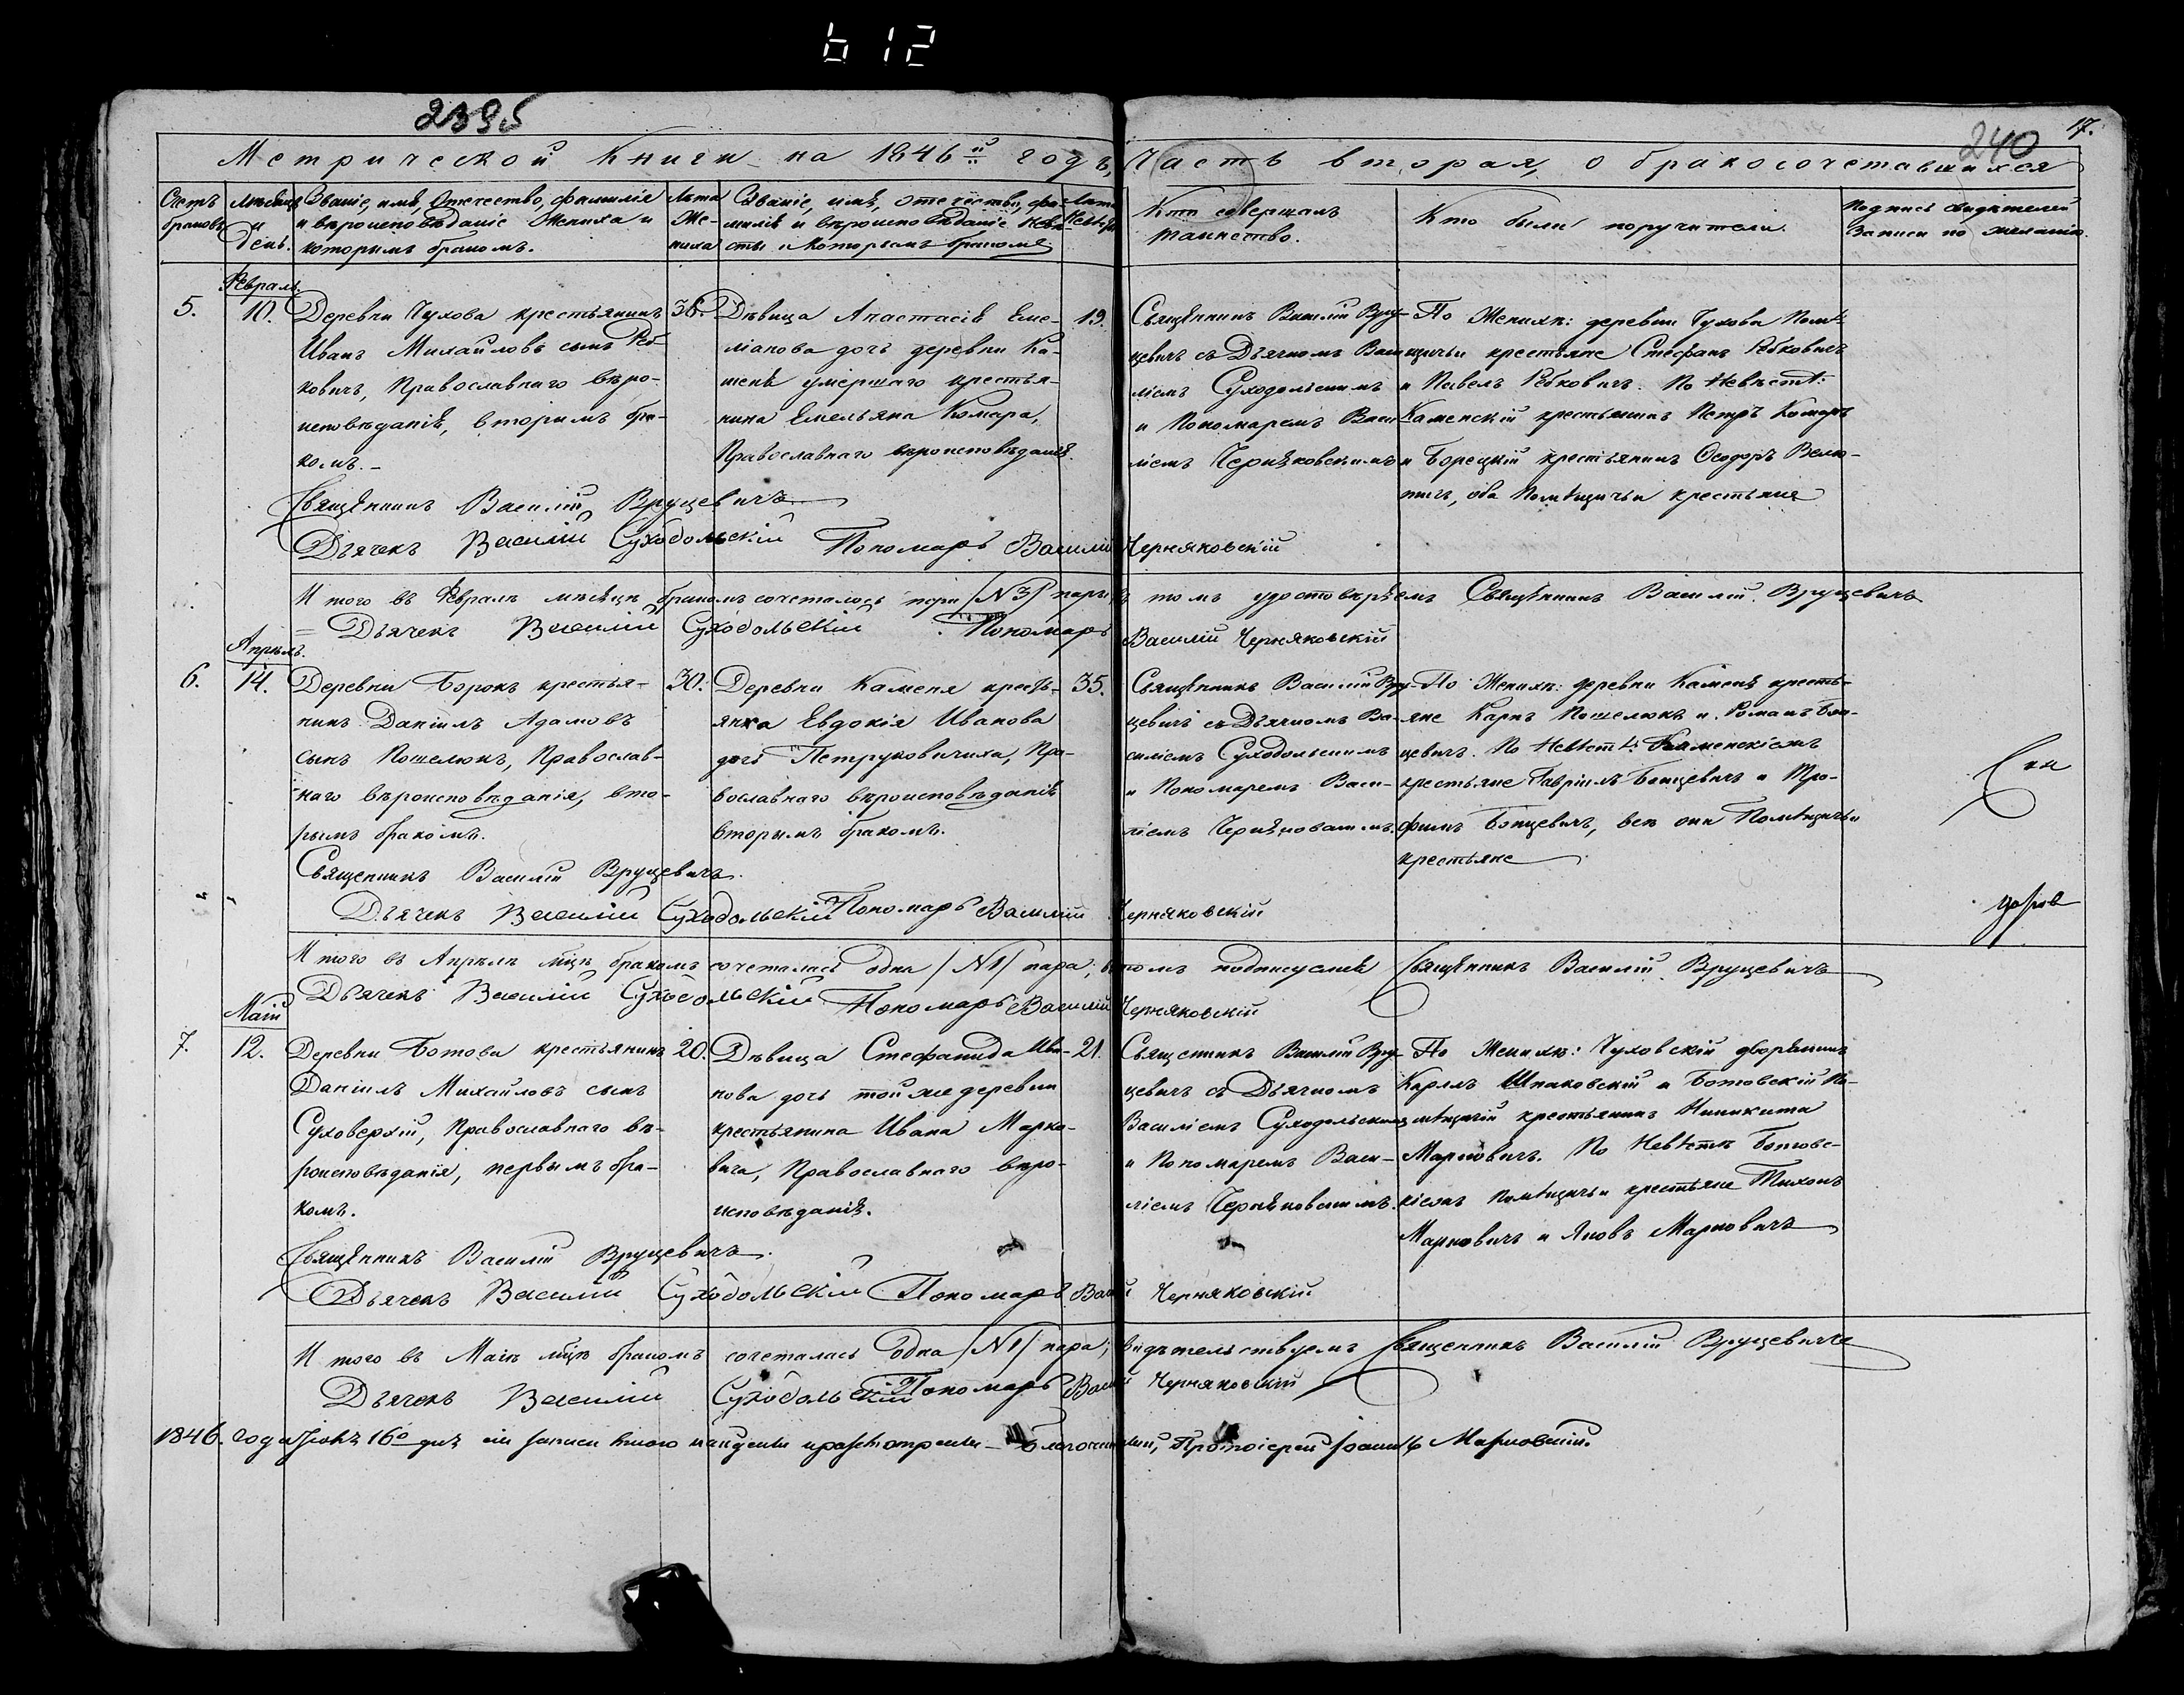 612
2395
240
17.
Метрической Книги на 1846й годъ, Часть вторая, о бракосочетавшихся
Счетъ браковъ
Мѣсяцъ и День.
Званіе, имя, Отечество, фамилія
и вѣроисповѣданіе Жениха и
которымъ бракомъ.
Лѣта Же-
ниха
Званіе, имя, отечество, фа-
милія и вѣроисповѣданіе Невѣ-
сты и Которымъ бракомъ
Лѣта Невѣсты
Кто совершалъ
таинство.
Кто были поручители.
Подпись свидѣтелей
записи по желанію.
Февраль.
5.
10.
Деревни Чухова крестьянинъ
Иванъ Михайловъ сынъ Реб-
ковичъ, Православнаго вѣро-
исповѣданія, вторымъ бра-
комъ.
36.
Дѣвица Анастасія Еме-
ліанова дочь деревни Ка-
меня умершаго крестья-
нина Емельяна Комара,
Православнаго вѣроисповѣданія.
19.
Священникъ Василій Вру-
цевичъ съ Дьячкомъ Васи-
ліемъ Суходольскимъ
и Пономаремъ Васи-
ліемъ Черняковскимъ
По Женихѣ: деревни Чухова Помѣ-
щичьи крестьяне Стефанъ Ребковичъ
и Павелъ Ребковичъ. По Невѣстѣ:
Каменскій крестьянинъ Петръ Комаръ
и Борецкій крестьянинъ Ѳеодоръ Велю-
тичъ, оба Помѣщичьи крестьяне
Священникъ Василій Вруцевичъ
Дьячекъ Василій Суходольскій Пономарь Василій Черняковскій
И того въ Февралѣ мѣсяцѣ бракомъ сочеталось три /N 3/ пары въ томъ удостовѣряемъ Священникъ Василій Вруцевичъ
Дьячекъ Василій Суходольскій Пономарь Василій Черняковскій
Апрѣль.
6.
14.
Деревни Борокъ крестья-
нинъ Даніилъ Адамовъ
сынъ Пошелюкъ, Православ-
наго вѣроисповѣданія, вто-
рымъ бракомъ.
30.
Деревни Каменя кресть-
янка Евдокія Иванова
дочь Петруковичиха, Пра-
вославнаго вѣроисповѣданія
вторымъ бракомъ.
35.
Священникъ Василій Вру-
цевичъ съ Дьячкомъ Ва-
силіемъ Суходольскимъ
и Пономаремъ Васи-
ліемъ Черняковскимъ.
По Женихѣ: деревни Каменя кресть-
яне Карпъ Пошелюкъ и Романъ Бон-
цевичъ. По Невѣстѣ: Каменскіежъ
крестьяне Гавріилъ Бонцевичъ и Тро-
фимъ Бонцевичъ, всѣ они Помѣщичьи
крестьяне
Священникъ Василій Вруцевичъ.
Дьячекъ Василій Суходольскій Пономарь Василій Черняковскій
И того въ Апрѣлѣ мцѣ бракомъ сочеталась одна /N 1/ пара; въ томъ подписуемся Священникъ Василій Вруцевичъ
Дьячекъ Василій Суходольскій Пономарь Василій Черняковскій
Маій
7.
12.
Деревни Ботова крестьянинъ
Даніилъ Михайловъ сынъ
Суховерхій, Православнаго вѣ-
роисповѣданія, первымъ бра-
комъ.
20.
Дѣвица Стефанида Ива-
нова дочь той же деревни
крестьянина Ивана Марко-
вича, Православнаго вѣро-
исповѣданія.
21.
Священникъ Василій Вру-
цевичъ съ Дьячкомъ
Василіемъ Суходольскимъ
и Пономаремъ Васи-
ліемъ Черняковскимъ.
По Женихѣ: Чуховскій дворянинъ
Карлъ Шпаковскій и Ботовскій По-
мѣщичій крестьянинъ Никита
Марковичъ. По Невѣстѣ Ботовс-
кіежъ помѣщичьи крестьяне Тихонъ
Марковичъ и Яковъ Марковичъ
Священникъ Василій Вруцевичъ.
Дьячекъ Василій Суходольскій Пономарь Василій Черняковскій
И того въ Маіѣ мцѣ бракомъ сочеталась одна /N 1/ пара; свидѣтельствуемъ Священникъ Василій Вруцевичъ
Дьячекъ Василій Суходольскій Пономарь Василій Черняковскій
1846. года 16 дня сіи записи Благочинный, Протоіерей Іоаннъ